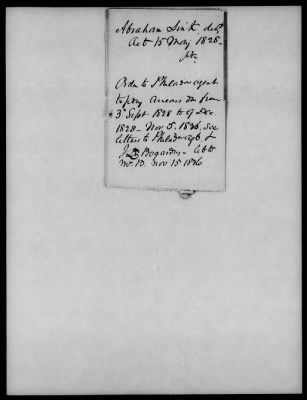 Abraham Link, decd
Act 15 May 1828.
Pa.
Order to Philada agent
to pay arrears due from
3d Sept 1828 to 9 Dec
1828 - Nov 5. 1836, see
letters to Philada agt. &
J. D. Bogardus - letter
Mr. B. Nov 15 1836.